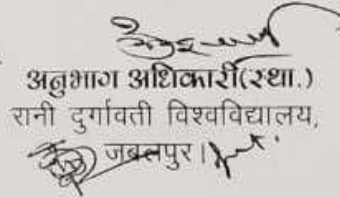 अनुभाग अधिकारी(स्था.)
रानी दुर्गावती विश्वविद्यालय,
जबलपुर।